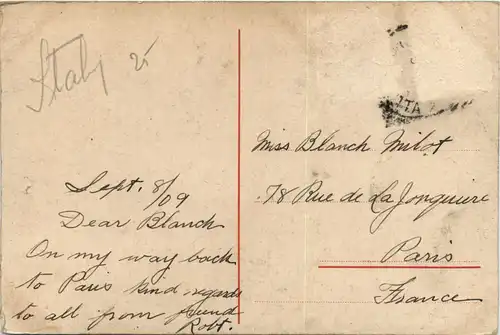 Italy 25
Sept. 8/09
Dear Blanch
On my way back
to Paris kind regards
to all from friend
Robt.
Miss Blanch Milot
78 Rue de La Jonquiere
Paris
France